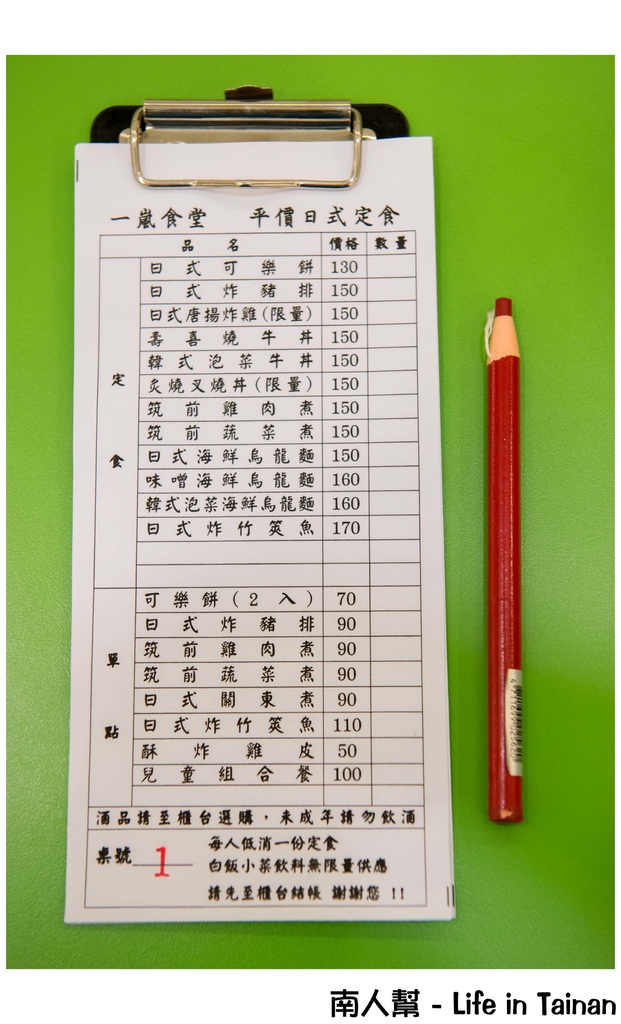 一嵐食堂 平價日式定食
品名 價格 數量
定食
日式可樂餅 130
日式炸豬排 150
日式唐揚炸雞(限量) 150
壽喜燒牛丼 150
韓式泡菜牛丼 150
炙燒叉燒丼(限量) 150
筑前雞肉煮 150
筑前蔬菜煮 150
日式海鮮烏龍麵 150
味噌海鮮烏龍麵 160
韓式泡菜海鮮烏龍麵 160
日式炸竹筴魚 170
單點
可樂餅(2入) 70
日式炸豬排 90
筑前雞肉煮 90
筑前蔬菜煮 90
日式關東煮 90
日式炸竹筴魚 110
酥炸雞皮 50
兒童組合餐 100
酒品請至櫃台選購，未成年請勿飲酒
桌號 1
每人低消一份定食
白飯小菜飲料無限量供應
請先至櫃台結帳 謝謝您 !!
南人幫 - Life in Tainan